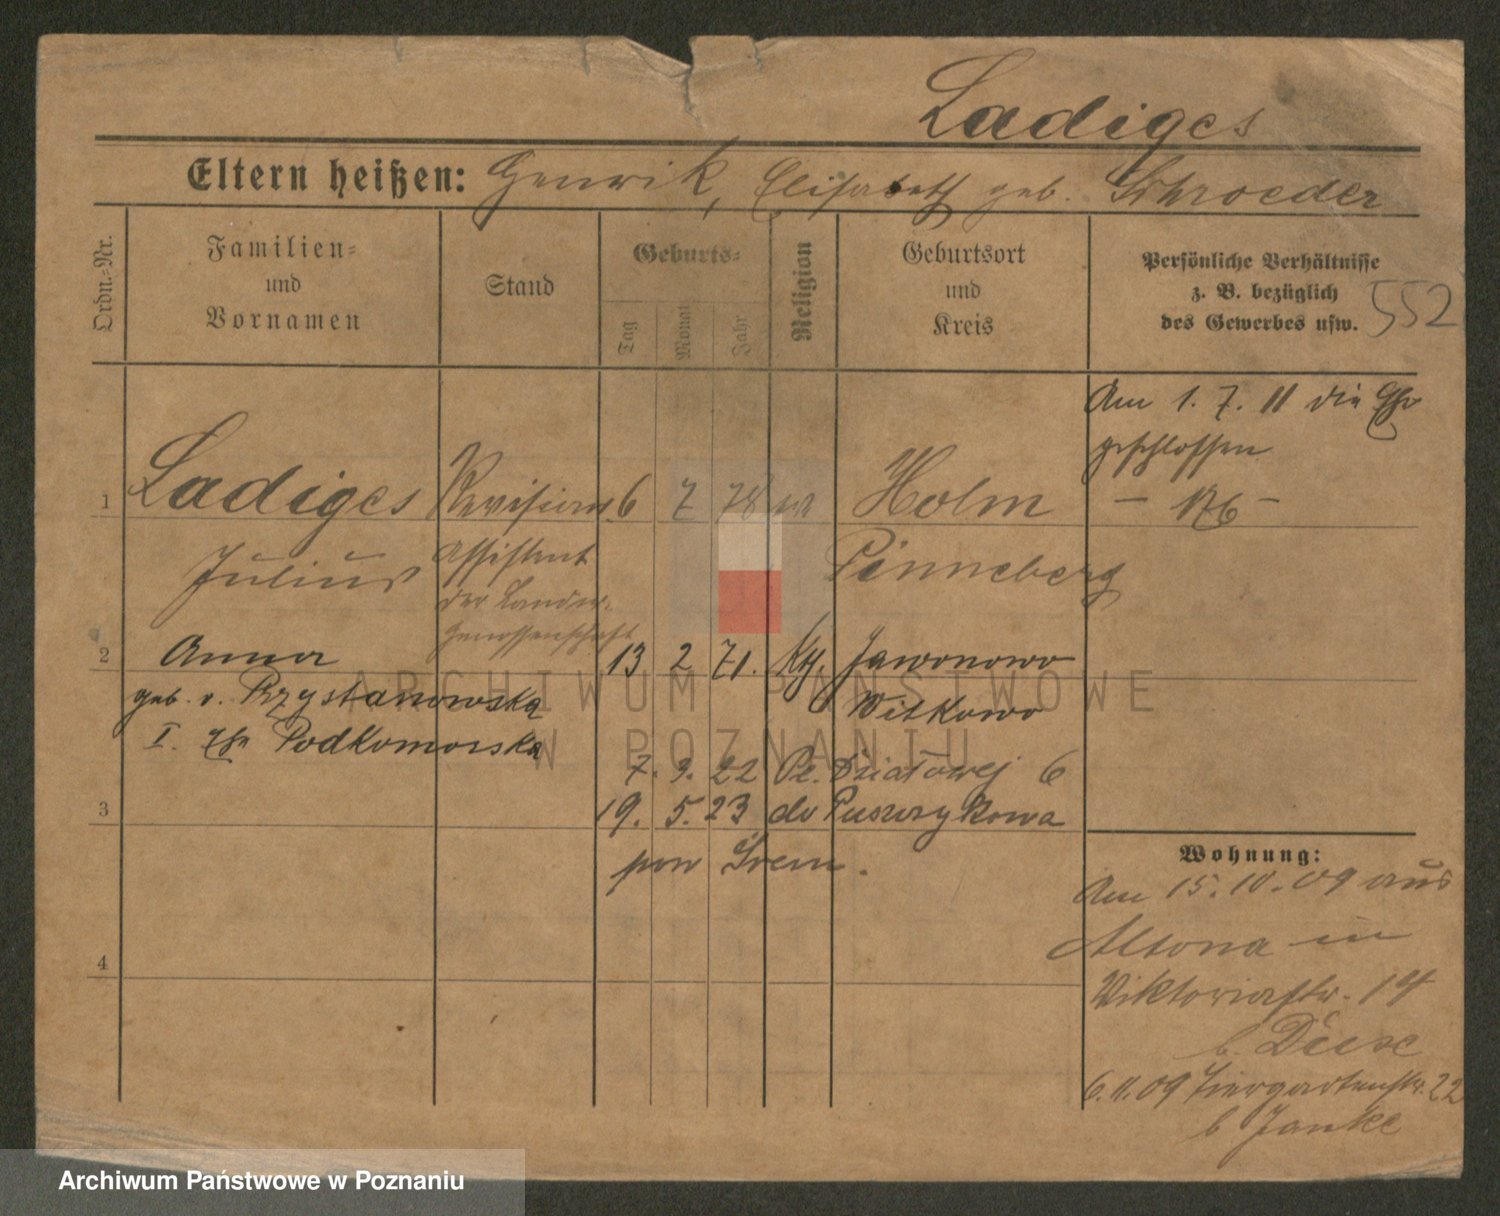 Ladiges
Eltern heißen: Henrik, Elisabeth geb. Schroeder
Ordn.-Nr.
Familien-
und
Vornamen
Stand
Geburts-
Tag
Monat
Jahr
Religion
Geburtsort
und
Kreis
Persönliche Verhältnisse
z. B. bezüglich
des Gewerbes usw.
552
Am 1. 7. 11 die Ehe
geschlossen
1 Ladiges Revisions 6 7 78 Holm
Julius Assistent Pinneberg
der Landw.
Genossenschaft
2 Anna 13 2 71. Kth. Jaworowo
geb. v. Przystanowska Witkowo
I. Ehe Podkomorska
7. 3. 22 Pl. Działowej 6
3 19. 5. 23 do Puszczykowa
pow Śrem.
4
Wohnung:
Am 15. 10. 09 aus
Altona in
Viktoriastr. 14
b. Deese
6.11.09 Tiergartenstr. 22
b Janke
ARCHIWUM PAŃSTWOWE
W POZNANIU
Archiwum Państwowe w Poznaniu